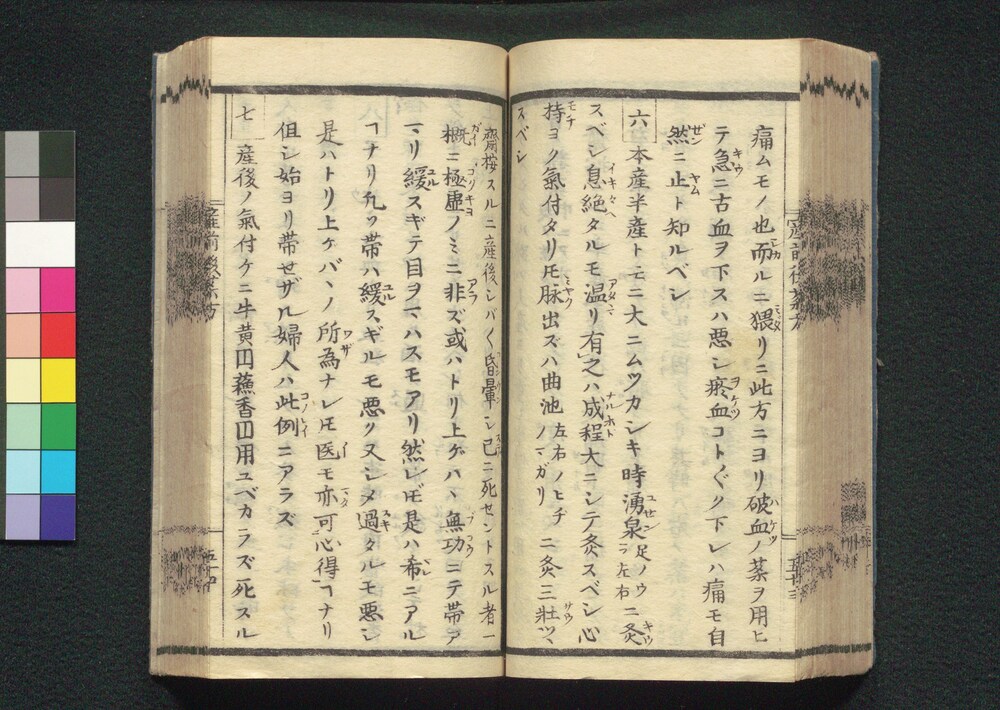 痛ムモノ也而ルニ猥リニ此方ニヨリ破血ノ薬ヲ用ヒ
テ急ニ古血ヲ下スハ悪シ瘀血コト〲ク下レハ痛モ自
然ニ止ト知ルベシ
六 本産半産トモニ大ニムツカシキ時湧泉足ノウラ左右ニ灸
スベシ息絶タルモ温リ有之ハ成程大ニシテ灸スベシ心
持ヨク氣付タリ𪜈脉出ズハ曲池左右ノヒチノマガリニ灸三壯ツヽ
スベシ
齋按スルニ産後シバ〱昏暈シ已ニ死セントスル者一
概ニ極虚ノミニ非ズ或ハトリ上ゲハヽ無功ニテ帯ア
マリ緩スギテ目ヲマハスモアリ然レ𪜈是ハ希ニアル
ヿナリ凡ソ帯ハ緩スギルモ悪ク又シメ過タルモ悪シ
是ハトリ上ゲバヽノ所為ナレ𪜈医モ亦可心得ヿナリ
但シ始ヨリ帯せザル婦人ハ此例ニアラズ
七 産後ノ氣付ケニ牛黄円蘓香円用ユベカラズ死スル
産前後薬方
五十三
産前後薬方
五十四